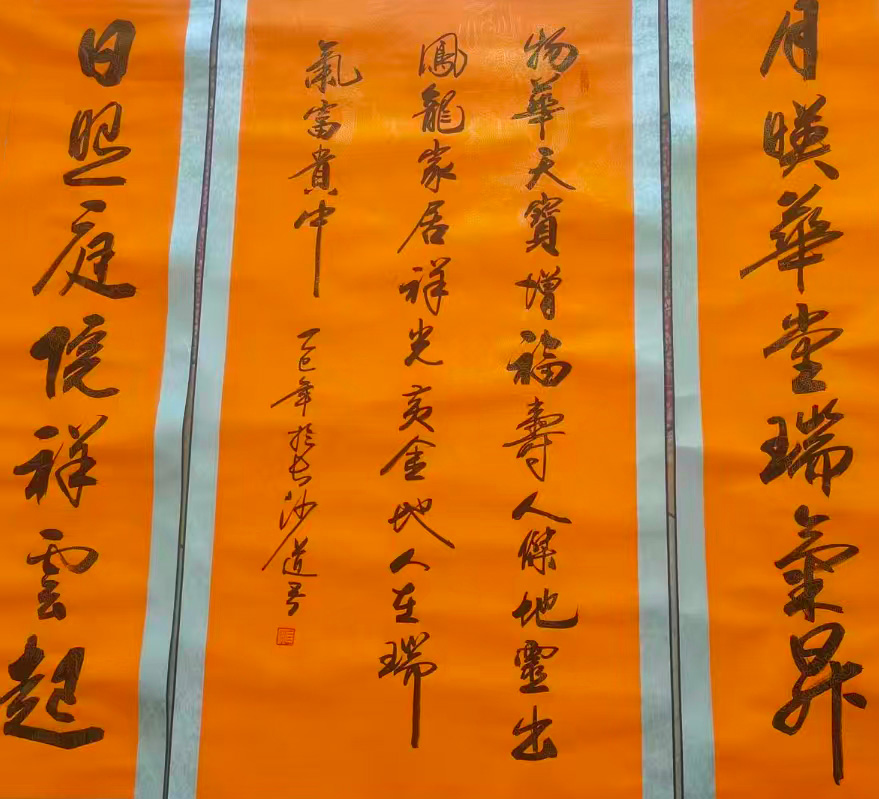 月暎華堂瑞氣昇
物華天寶增福壽人傑地靈出
鳳龍家居祥光黄金地人在瑞
氣富貴中
丁巳年於長沙道君
日照庭院祥雲起